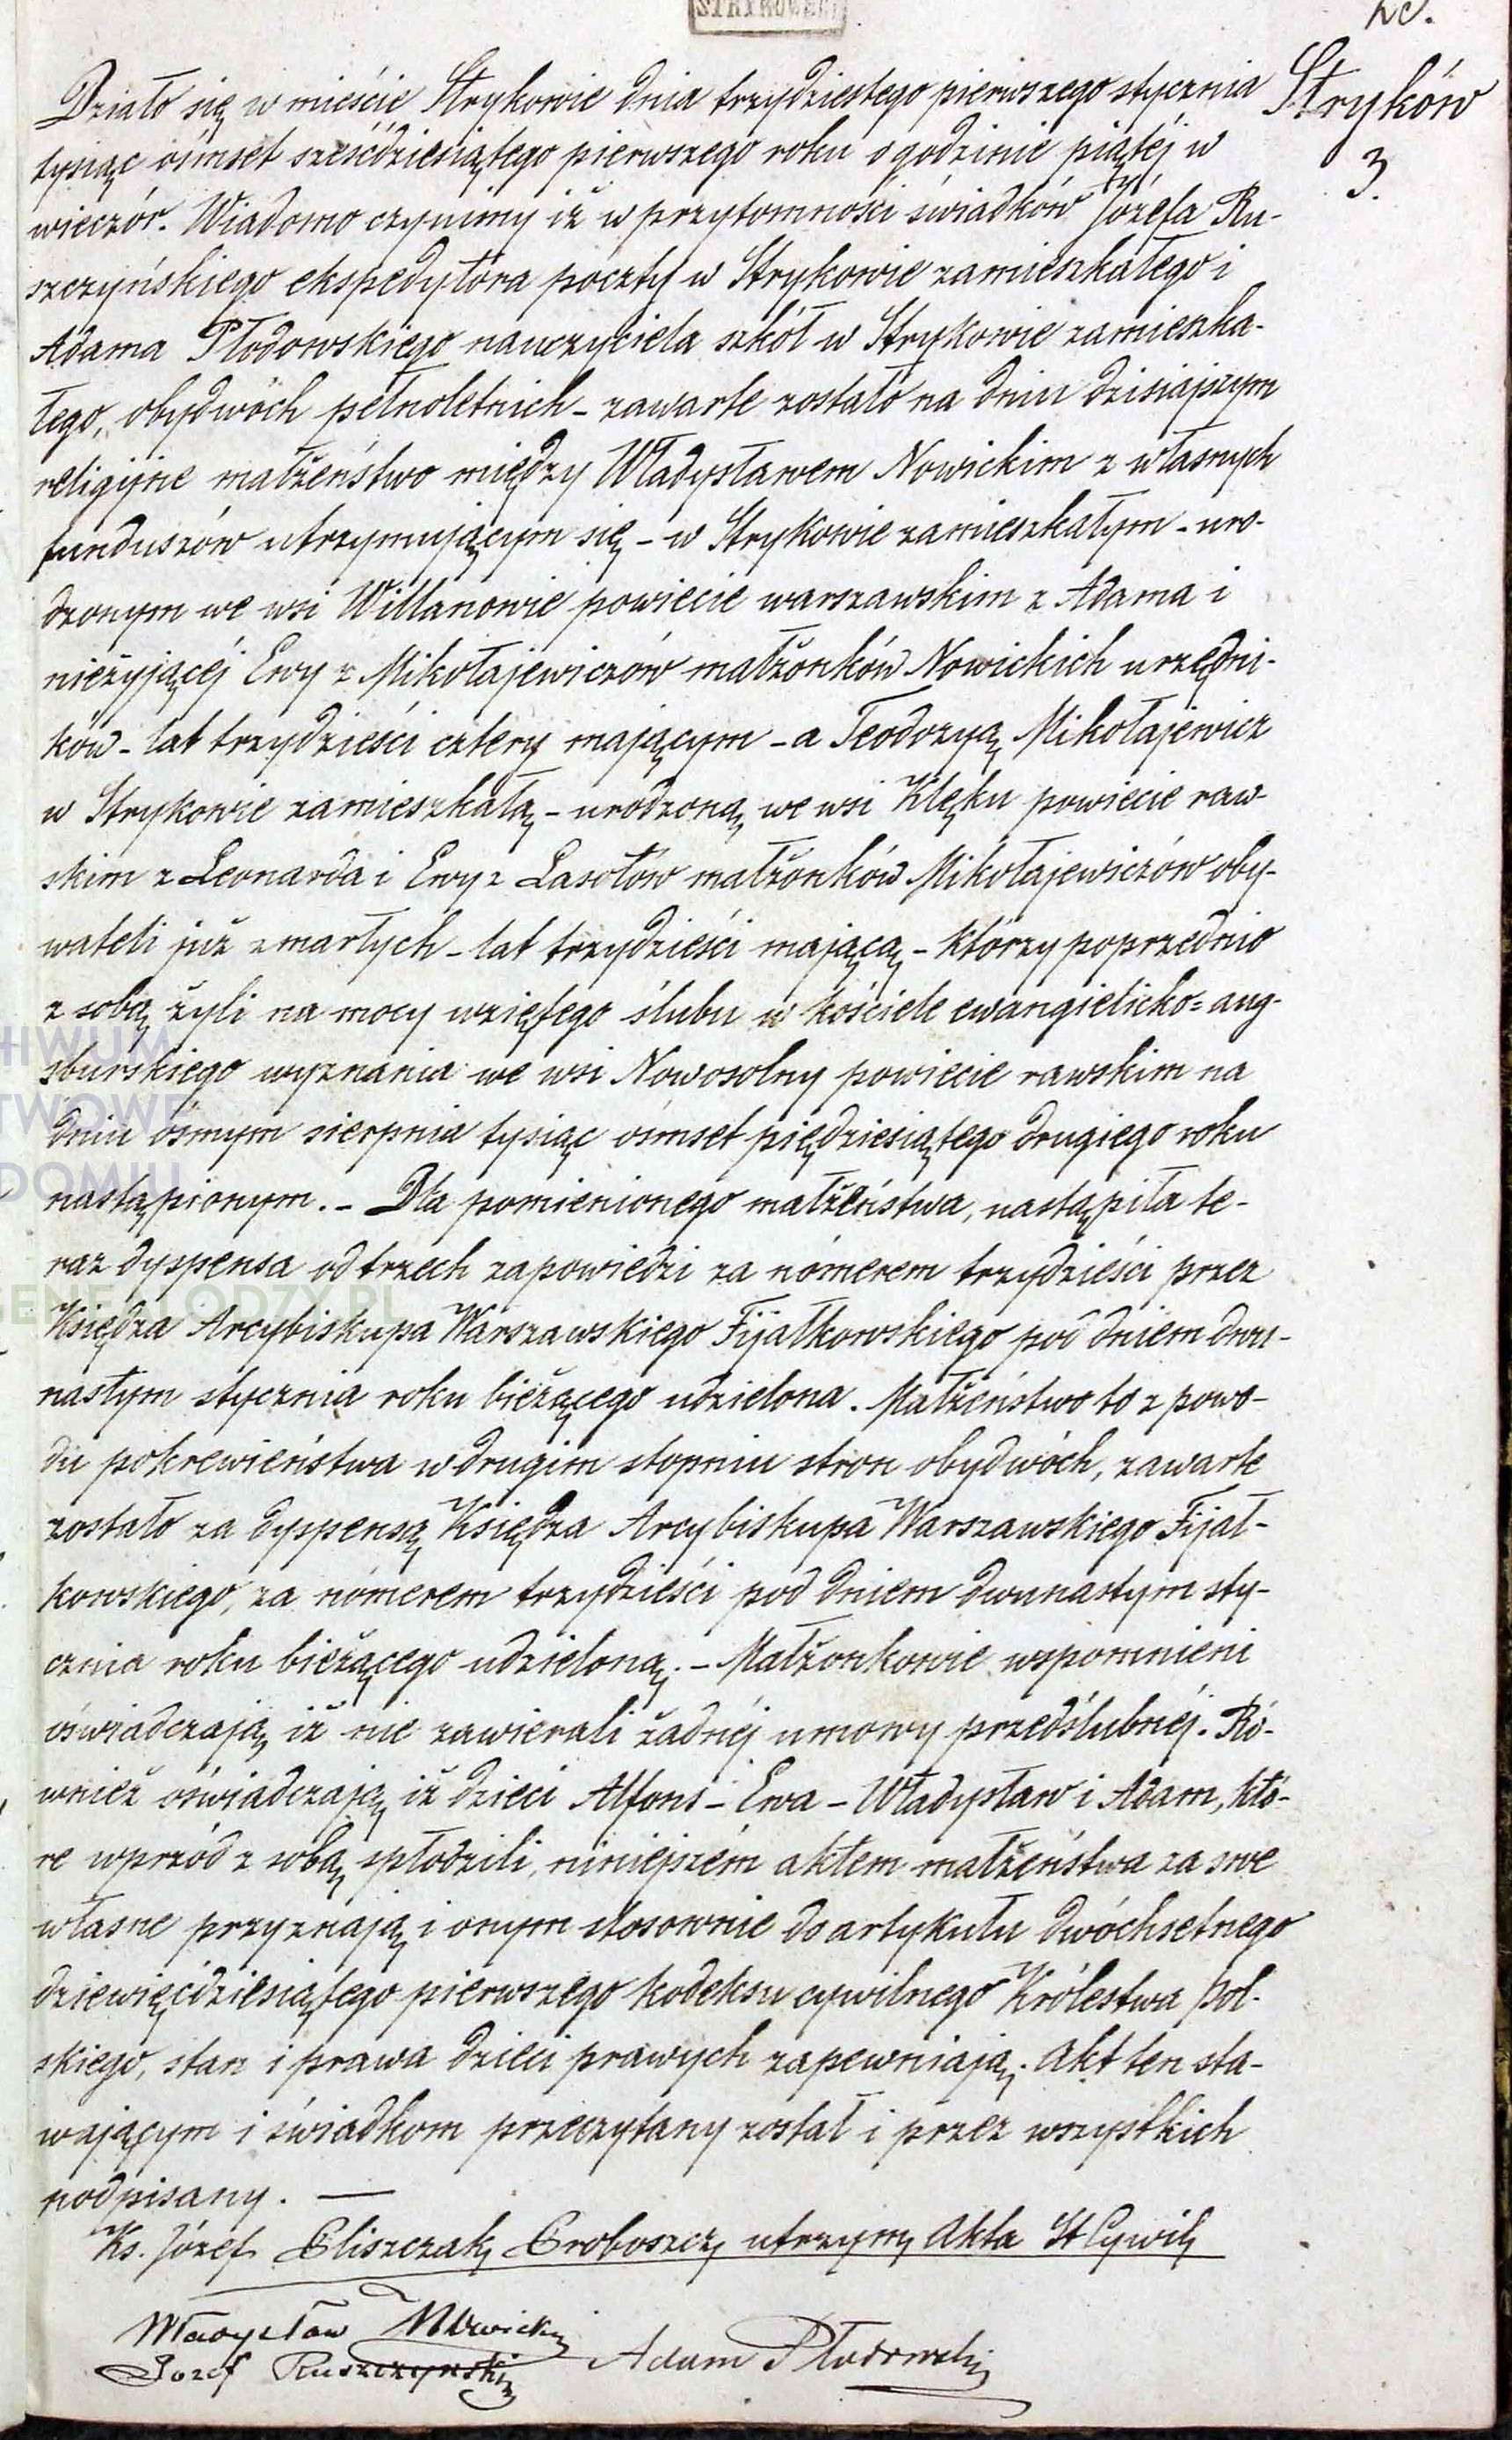 STRYKOWSKI
Działo się w mieście Strykowie dnia trzydziestego pierwszego stycznia
Stryków
3.
tysiąc ośmset sześćdziesiątego pierwszego roku o godzinie piątéj w
wieczór. Wiadomo czynimy iż w przytomności świadków Józefa Ru-
szczyńskiego ekspedytora poczty w Strykowie zamieszkałego i
Adama Płodowskiego nauczyciela szkół w Strykowie zamieszka-
łego, obydwóch pełnoletnich - zawarte zostało na dniu dzisiajszym
religijne małżeństwo między Władysławem Nowickim z własnych
funduszów utrzymującym się - w Strykowie zamieszkałym - uro-
dzonym we wsi Willanowie powiecie warszawskim z Adama i
nieżyjącéj Ewy z Mikołajewiczów małżonków Nowickich urzędni-
ków - lat trzydzieści cztery mającym - a Teodozyą Mikołajewicz
w Strykowie zamieszkałą - urodzoną we wsi Klęku powiecie raw-
skim z Leonarda i Ewy z Lasotów małżonków Mikołajewiczów oby-
wateli już zmarłych - lat trzydzieści mającą - którzy poprzednio
z sobą żyli na mocy wziętego ślubu w kościele ewangielicko=aug-
sburskiego wyznania we wsi Nowosolny powiecie rawskim na
dniu ósmym sierpnia tysiąc ośmset pięćdziesiątego drugiego roku
nastąpionym. - Dla pomienionego małżeństwa, nastąpiła te-
raz dyspensa od trzech zapowiedzi za nómerem trzydzieści przez
Księdza Arcybiskupa Warszawskiego Fijałkowskiego pod dniem dwu-
nastym stycznia roku bieżącego udzielona. Małżeństwo to z powo-
du pokrewieństwa w drugim stopniu stron obydwóch, zawarte
zostało za dyspensą Księdza Arcybiskupa Warszawskiego Fijał-
kowskiego, za nómerem trzydzieści pod dniem dwunastym sty-
cznia roku bieżącego udzieloną. - Małżonkowie wspomnieni
oświadczają iż nie zawierali żadnéj umowy przedślubnéj. Ró-
wnież oświadczają iż dzieci Alfons - Ewa - Władysław i Adam, któ-
re wprzód z sobą spłodzili, niniejszém aktem małżeństwa za swe
własne przyznają i onym stosownie do artykułu dwóchsetnego
dziewięćdziesiątego pierwszego kodeksu cywilnego Królestwa Pol-
skiego, stan i prawa dzieci prawych zapewniają. Akt ten sta-
wającym i świadkom przeczytany został i przez wszystkich
podpisany. —
Ks. Józef Pliszczak Proboszcz utrzym Akta St Cywil
Władysław Nowicki
Adam Płodowski
Jozef Ruszczynski
HIWUM
TWOWE
DOMIU
GENEALODZY.PL